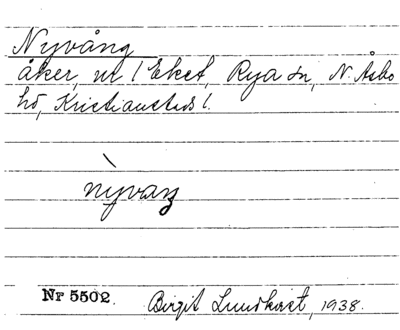 Nyvång
åker, nr 1 Eket, Rya sn, N. Åsbo
hd, Kristianstads l.
nỳvaŋ
Nr 5502. Birgit Lundkvist, 1938.